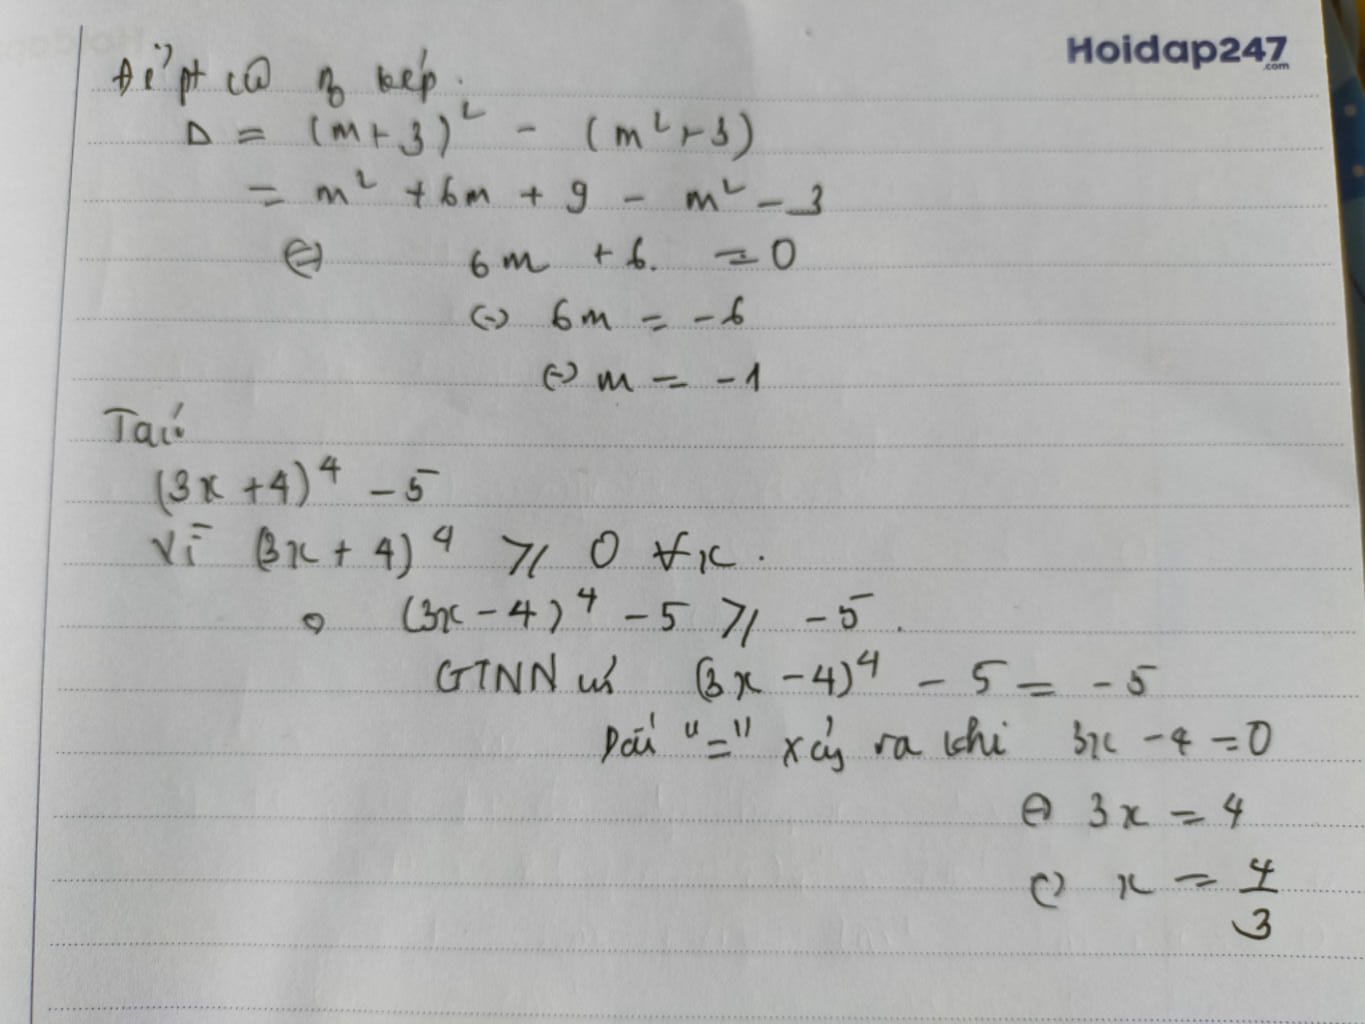 Hoidap247
.com
Để pt có n kép.
Δ = (m+3)² - (m²+3)
= m² + 6m + 9 - m² - 3
⇔ 6m + 6. = 0
⇔ 6m = -6
⇔ m = -1
Ta có
(3x+4)⁴ - 5
Vì (3x+4)⁴ ⩾ 0 ∀x.
(3x-4)⁴ - 5 ⩾ -5.
GTNN của (3x-4)⁴ - 5 = -5
Dấu "=" xảy ra khi 3x-4=0
⇔ 3x = 4
⇔ x = 4/3